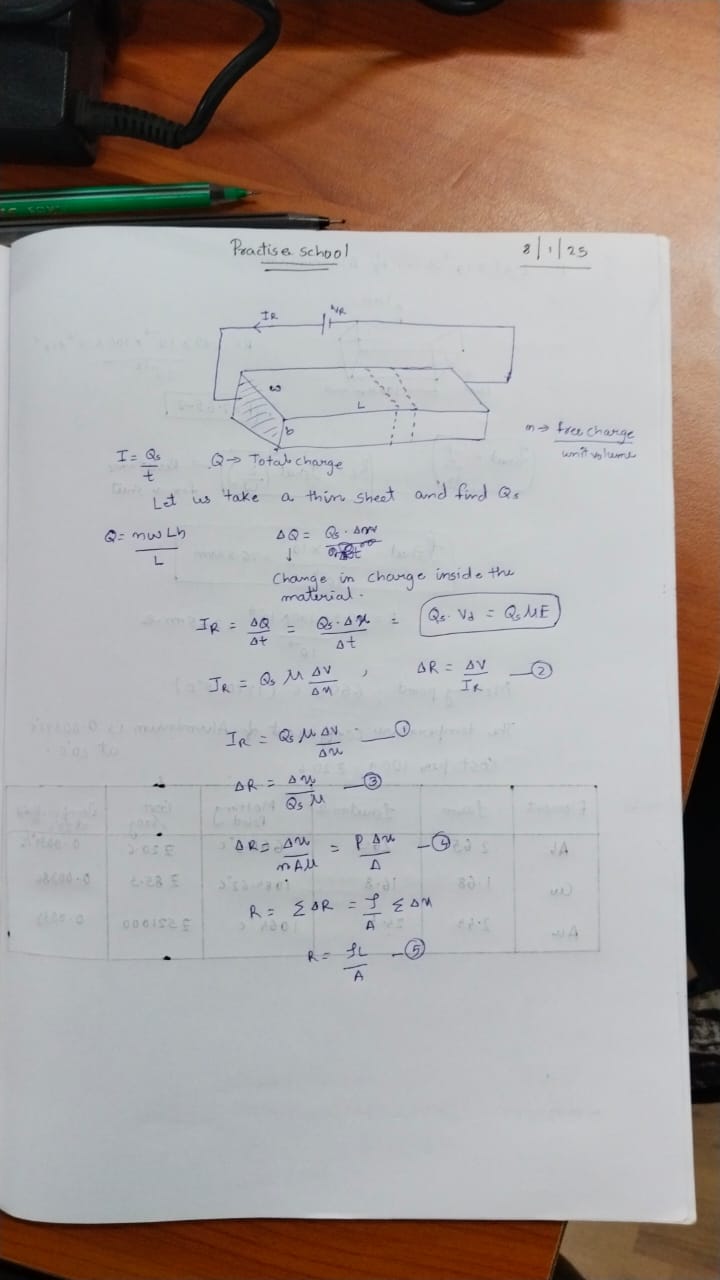 Practise school
8/1/25
I_R
V_R
w
L
b
n → free charge / unit volume
I = Qs / t
Q → Total charge
Let us take a thin sheet and find Qs
Q = nwLh / L
ΔQ = Qs · Δx
↓
Change in charge inside the
material.
I_R = ΔQ / Δt = Qs · Δx / Δt = Qs · Vd = Qs μE
I_R = Qs μ ΔV / Δx , ΔR = ΔV / I_R — ②
I_R = Qs μ ΔV / Δx — ①
ΔR = Δx / Qs μ — ③
ΔR = Δx / nAμ = ρ Δx / A — ④
R = Σ ΔR = ρ / A Σ Δx
R = ρL / A — ⑤